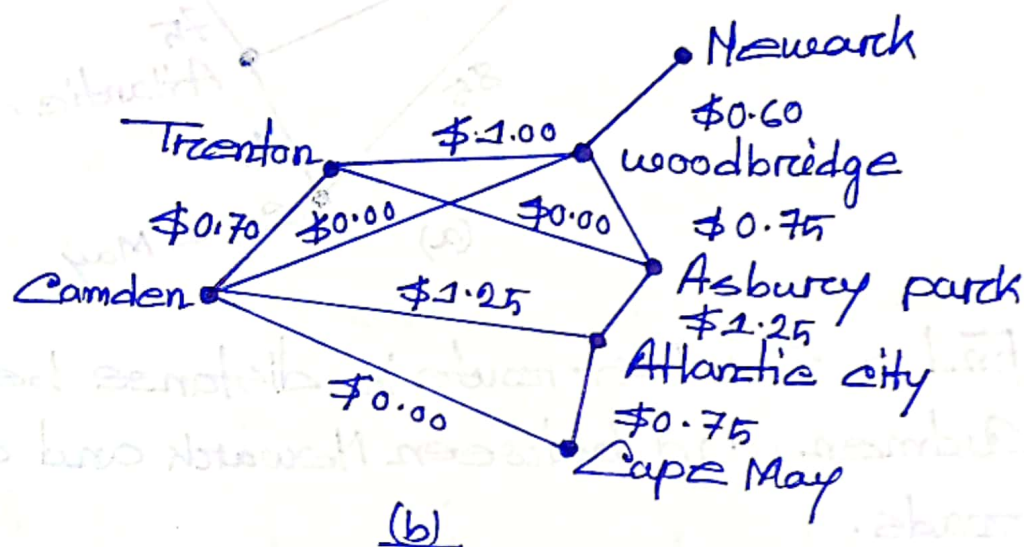 Newark
$0.60
Trenton
$1.00
woodbridge
$0.70
$0.00
$0.00
$0.75
Camden
$1.25
Asbury park
$1.25
Atlantic city
$0.00
$0.75
Cape May
(b)